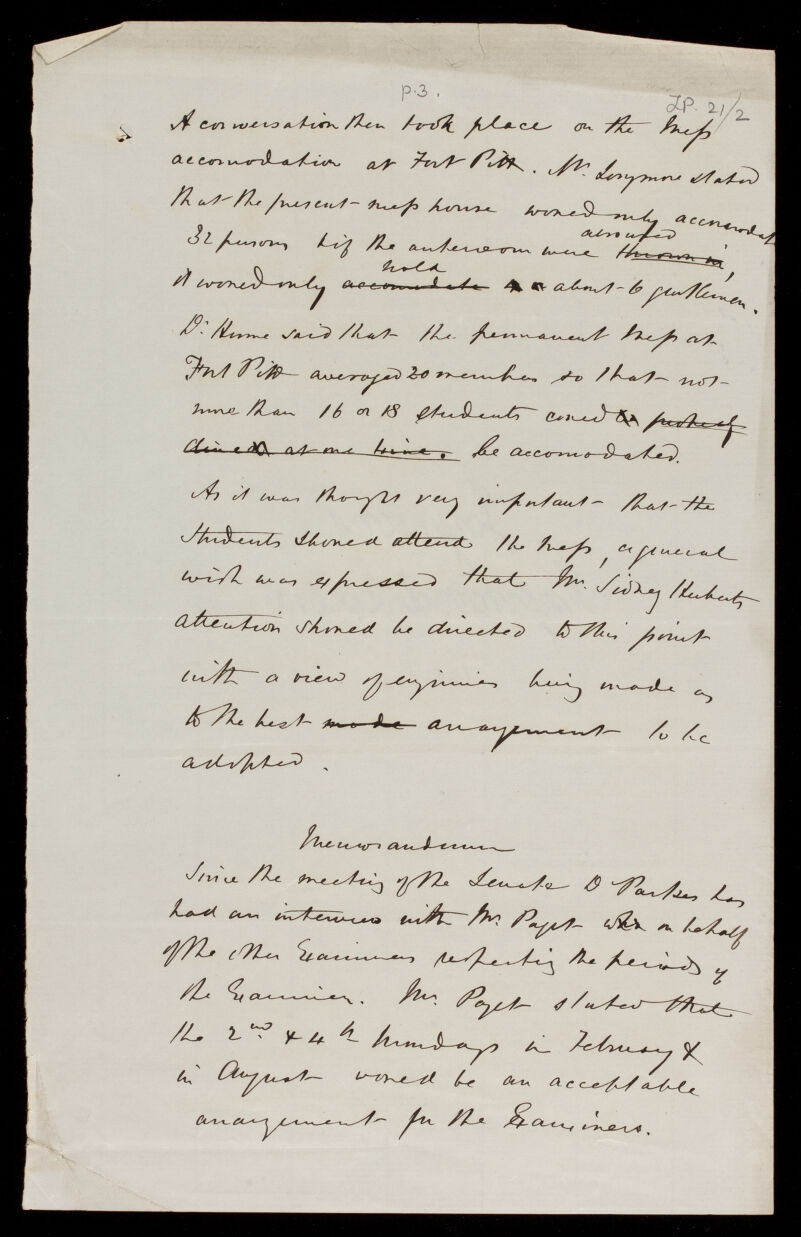 p.3.
LP. 21/2
A conversation then took place on the Mess
accomodation at Fort Pitt. Mr. Longmore stated
that the present mess house would only accomodate
32 persons & if the anteroom were thrown in,
hold
it would only accomodate about 6 gentlemen.
Dr. Hume said that the permanent Mess at
Fort Pitt averaged 20 members so that not
more than 16 or 18 students could
dine at one time. be accomodated.
As it was thought very important that the
Students should attend the Mess, a general
wish was expressed that Mr. Sidney Herberts
attention should be directed to this point
with a view of enquiries being made as
to the best mode arrangement to be
adopted.
Memorandum
Since the meeting of the Senate Dr Parkes has
had an interview with Mr. Paget on behalf
of the other Examiners respecting the periods of
the Examinen. Mr. Paget stated that
the 2nd & 4th Mondays in February &
in August would be an acceptable
arrangement for the Examiners.